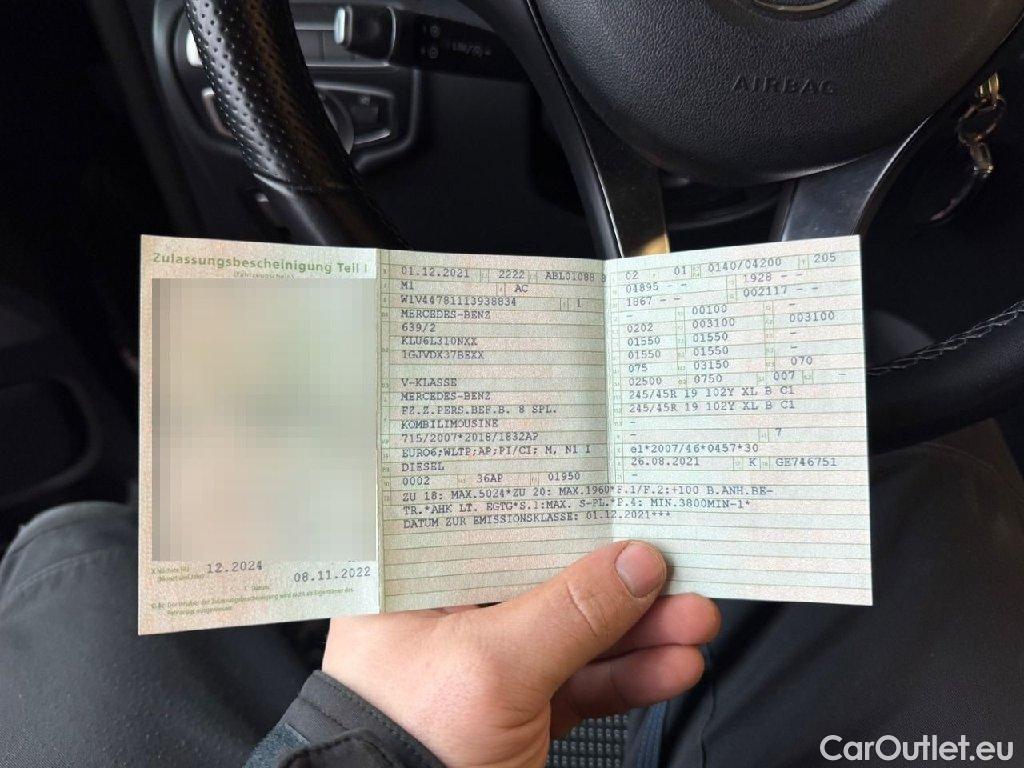 AIRBAG
Zulassungsbescheinigung Teil I
12.2024
08.11.2022
01.12.2021 2222 ABL01088
M1 AC
W1V44781113938834 1
MERCEDES-BENZ
639/2
KLU6L310NXX
1GJVDX37BEXX
V-KLASSE
MERCEDES-BENZ
FZ.Z.PERS.BEF.B. 8 SPL.
KOMBILIMOUSINE
715/2007*2018/1832AP
EURO6;WLTP;AP;PI/CI; M, N1 I
DIESEL
0002 36AP 01950
02 01 0140/04200 205
04895 - - 1928 - -
1867 - - 002117 - -
- 00100 -
0202 003100 003100
01550 01550 -
01550 01550 -
075 03150 070
02500 0750 007 -
245/45R 19 102Y XL B C1
245/45R 19 102Y XL B C1
-
- 7
e1*2007/46*0457*30
26.08.2021 K GE746751
-
ZU 18: MAX.5024*ZU 20: MAX.1960*F.1/F.2:+100 B.ANH.BE-
TR.*AHK LT. EGTG*S.1:MAX. S-PL.*P.4: MIN.3800MIN-1*
DATUM ZUR EMISSIONSKLASSE: 01.12.2021***
CarOutlet.eu